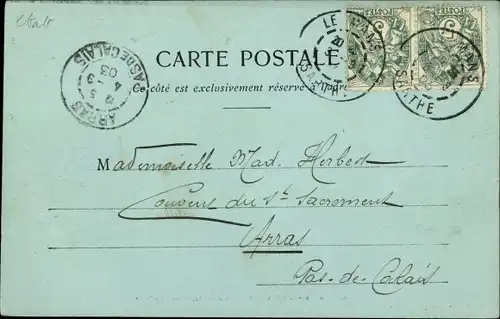 CARTE POSTALE
Ce côté est exclusivement réservé à l'adre
LE MANS
SARTHE
LE MANS
SARTHE
ARRAS
PAS DE CALAIS
12 5
4 - 3
03
Mademoiselle Mad. Herbert
Couvent du St Sacrement
Arras
Pas-de-Calais